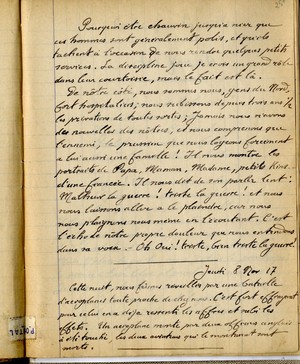 Pourquoi être chauvin jusqu'à nier que
ces hommes sont généralement polis, et qu'ils
tâchent à l'occasion de nous rendre quelques petits
services. La discipline joue je crois un grand rôle
dans leur courtoisie, mais le fait est là.
De notre côté, nous sommes nous, gens du Nord,
fort hospitaliers; nous subissons depuis trois ans 1/2
les privations de toutes sortes; jamais nous n'avons
des nouvelles des nôtres, et nous comprenons que
l'ennemi, le prussien que nous logeons forcément
a lui aussi une famille! Il nous montre les
portraits de Papa, Maman, Madame, petits kinds
d'une fiancée. Il nous dit de son parler lent:
Malheur la guerre! triste la guerre! et nous
nous laissons aller à le plaindre, car nous
nous plaignons nous même en l'écoutant. C'est
l'écho de notre propre douleur que nous entendons
dans sa voix. - Oh Oui! triste, bien triste la guerre!
Jeudi 8 Nov 17
Cette nuit, nous fûmes réveillés par une bataille
d'aéroplanes toute proche de chez nous. C'est fort effrayant
pour celui en a déjà ressenti les affres et subi les
effets. Un aéroplane monté par deux officiers anglais
a été touché, les deux aviateurs qui le montaient sont
morts.
POSTAL